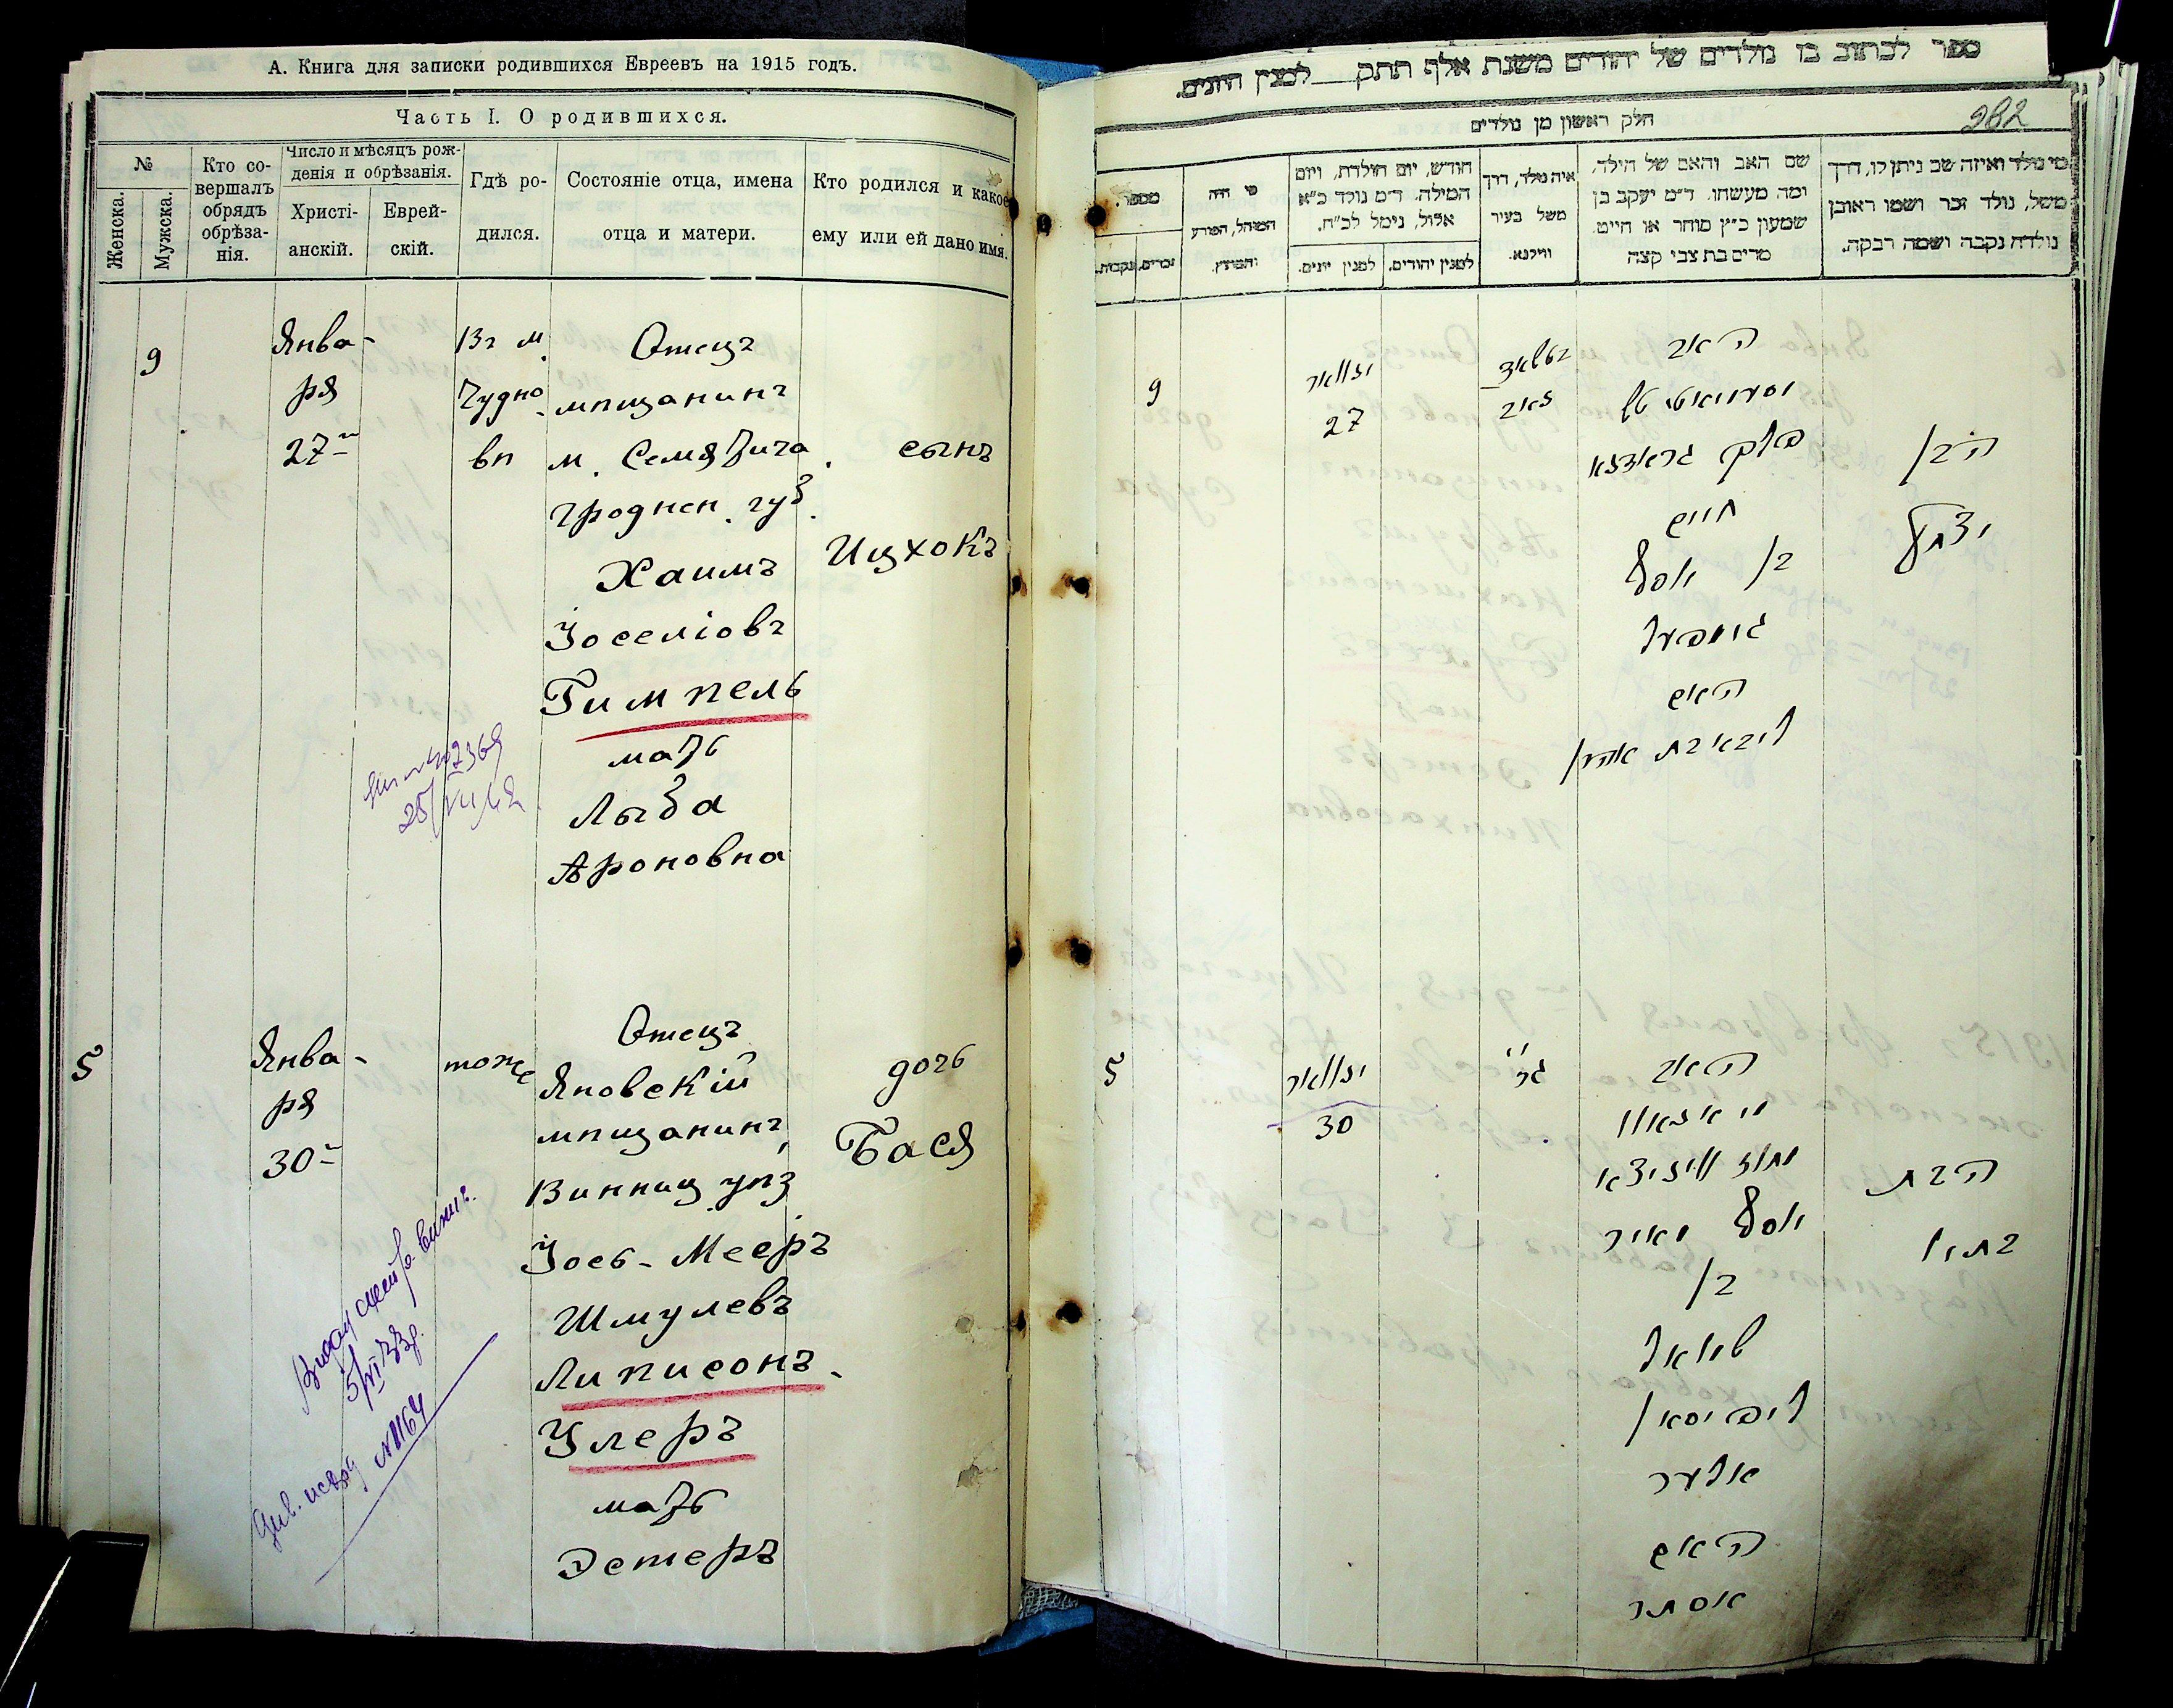 А. Книга для записки родившихся Евреевъ на 1915 годъ.
Часть I. О родившихся.
№
Женска.
Мужска.
Кто со-
вершалъ
обрядъ
обрѣза-
нія.
Число и мѣсяцъ рож-
денія и обрѣзанія.
Христі-
анскій.
Еврей-
скій.
Гдѣ ро-
дился.
Состояніе отца, имена
отца и матери.
Кто родился и какое
ему или ей дано имя.
9
Янва-
ря
27
Въ м.
Чудно-
вѣ
Отецъ
мѣщанинъ
м. Семятича
Гроднен. губ.
Хаимъ
Іоселіовъ
Гимпель
мать
Лыба
Ароновна
сынъ
Ицхокъ
25/VII
5
Янва-
ря
30
тоже
Отецъ
Яновскій
мѣщанинъ
Винниц. уѣз
Іось-Мееръ
Шмулевъ
Липисонъ-
Улеръ
мать
Эстеръ
дочь
Бася
5/VI 33 р.
№ 1164
ספר לכתוב בו נולדים של יהודים משנת אלף תתק___למנין היונים.
282
חלק ראשון מן נולדים
מספר.
זכרים.
נקבות.
מי היה
המוהל, הפורע
והמוצץ.
חודש, יום הולדת, ויום
המילה. ד״מ נולד כ״א
אלול, נימל לכ״ח.
למנין יונים.
למנין יהודים.
איה נולד, דרך
משל בעיר
ווילנא.
שם האב והאם של הילד.
ומה מעשהו. ד״מ יעקב בן
שמעון כ״ץ סוחר או חייט.
מרים בת צבי קצה
מי נולד ואיזה שם ניתן לו, דרך
משל, נולד זכר ושמו ראובן
נולדה נקבה ושמה רבקה.
9
ינואר
27
האב
חיים
בן יוסף
גימפעל
האם
ליבא בת אהרן
הבן
יצחק
5
ינואר
30
האב
יוסף מאיר
בן
שמואל
ליפיסאן
אולער
האם
אסתר
הבת